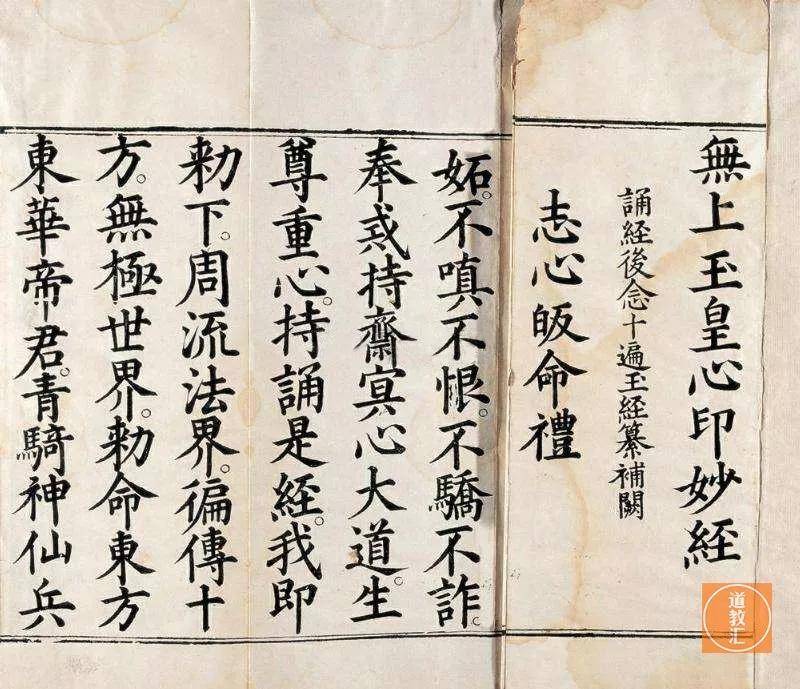 無上玉皇心印妙經
誦經後念十遍玉經纂補闕
志心皈命禮
妬。不嗔不恨。不驕不詐。
奉戒持齋冥心大道。生
尊重心。持誦是經。我即
勅下。周流法界。徧傳十
方。無極世界。勅命東方
東華帝君。青騎神仙兵
道教汇